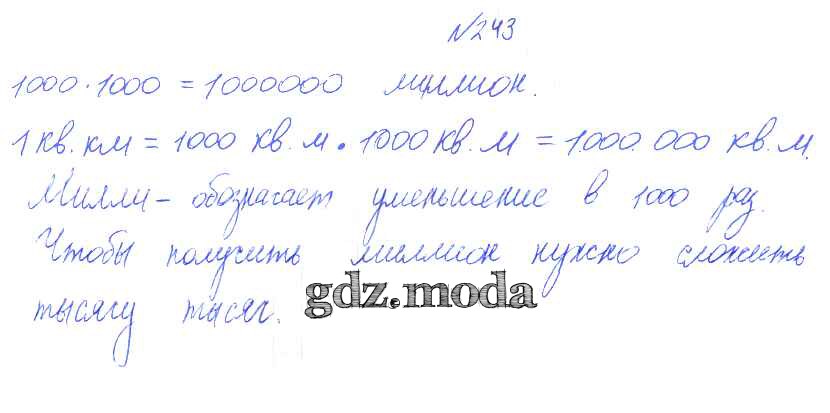 №243
1000·1000 = 1000000 миллион.
1 кв. км = 1000 кв. м · 1000 кв. м = 1.000.000 кв. м.
Милли – обозначает уменьшение в 1000 раз.
Чтобы получить миллион нужно сложить
тысячу тысяч.
gdz.moda